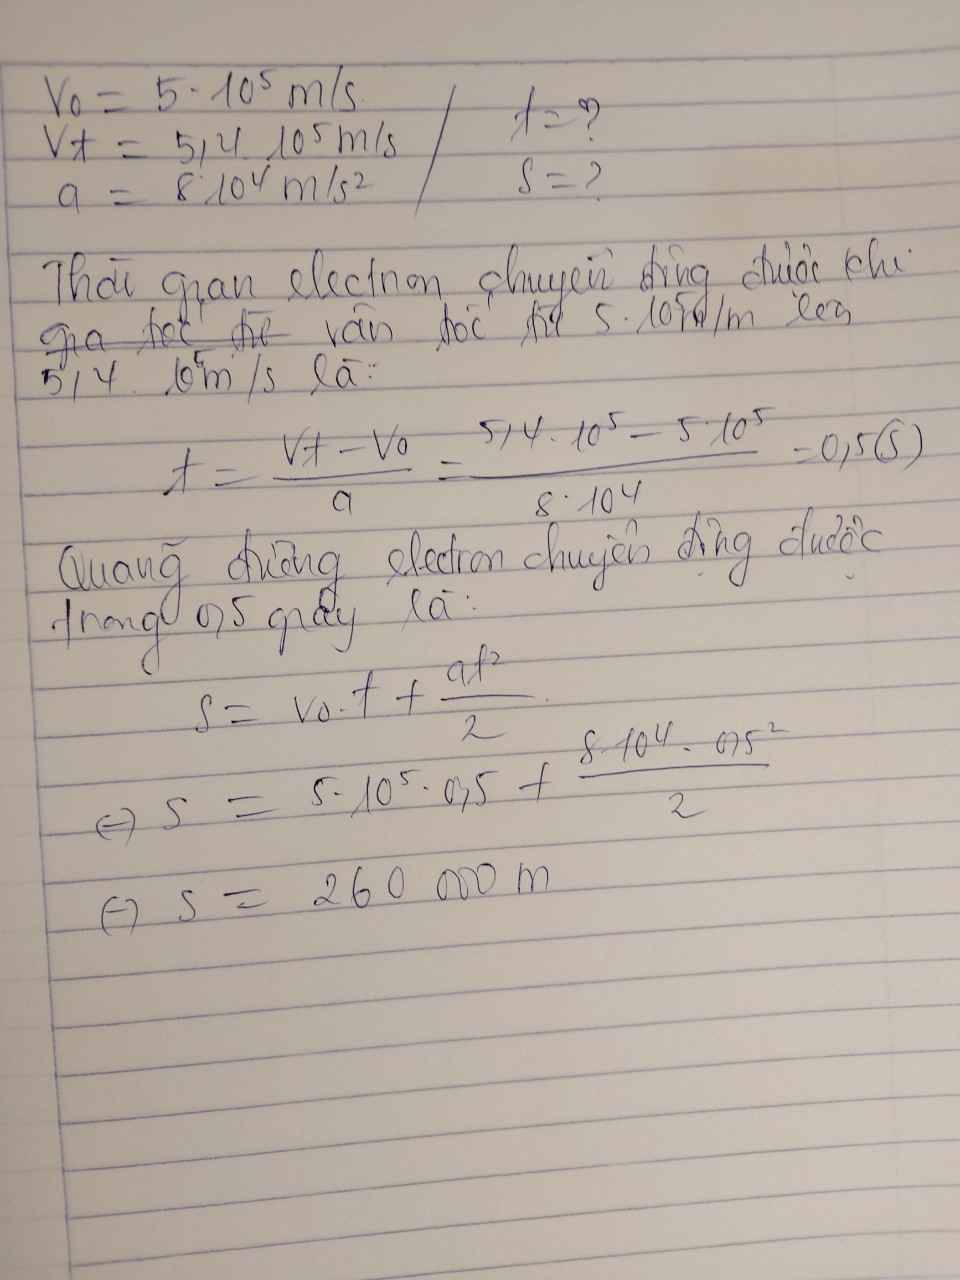 V₀ = 5 · 10⁵ m/s.
Vt = 5,4 10⁵ m/s / t = ?
a = 8·10⁴ m/s² S = ?
Thời gian electron chuyển động được khi
gia tốc từ vận tốc từ 5.10⁵ m lên
5,4 . 10⁵ m/s là:
t = (Vt - V₀)/a = (5,4 . 10⁵ - 5·10⁵)/(8·10⁴) = 0,5(s)
Quãng đường electron chuyển động được
trong 0,5 giây là:
S = v₀.t + at²/2
⇔ S = 5·10⁵·0,5 + (8·10⁴·0,5²)/2
⇔ S = 260 000 m